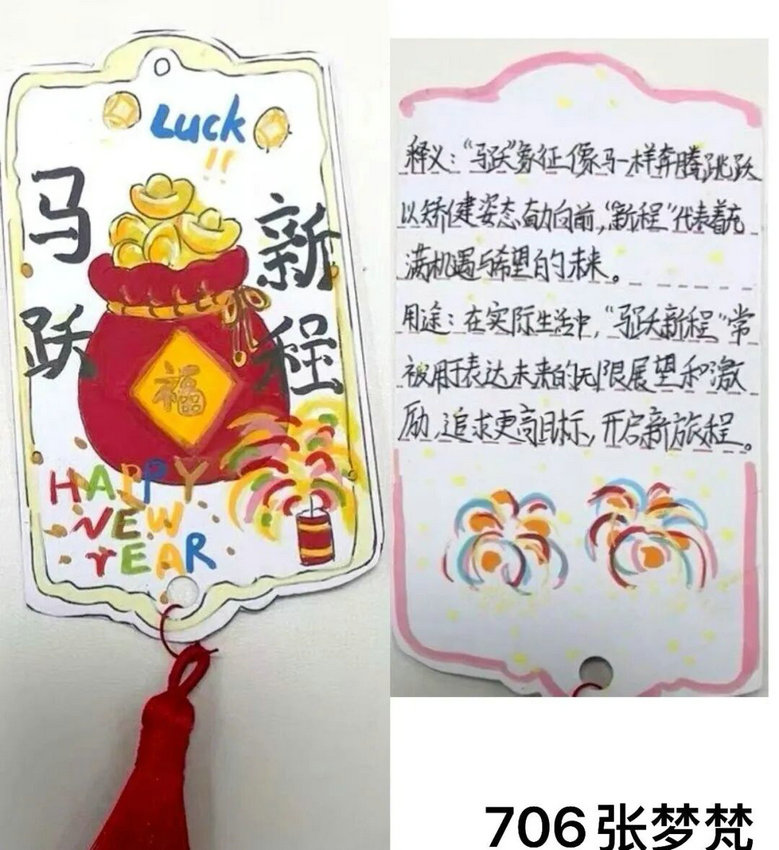 Luck
!!
马跃
新程
福
HAPPY
NEW
YEAR
释义：“马跃”象征像马一样奔腾跳跃
以矫健姿态奋力向前，“新程”代表着充
满机遇与希望的未来。
用途：在实际生活中，“马跃新程”常
被用于表达未来的无限展望和激
励，追求更高目标，开启新旅程。
706张梦梵